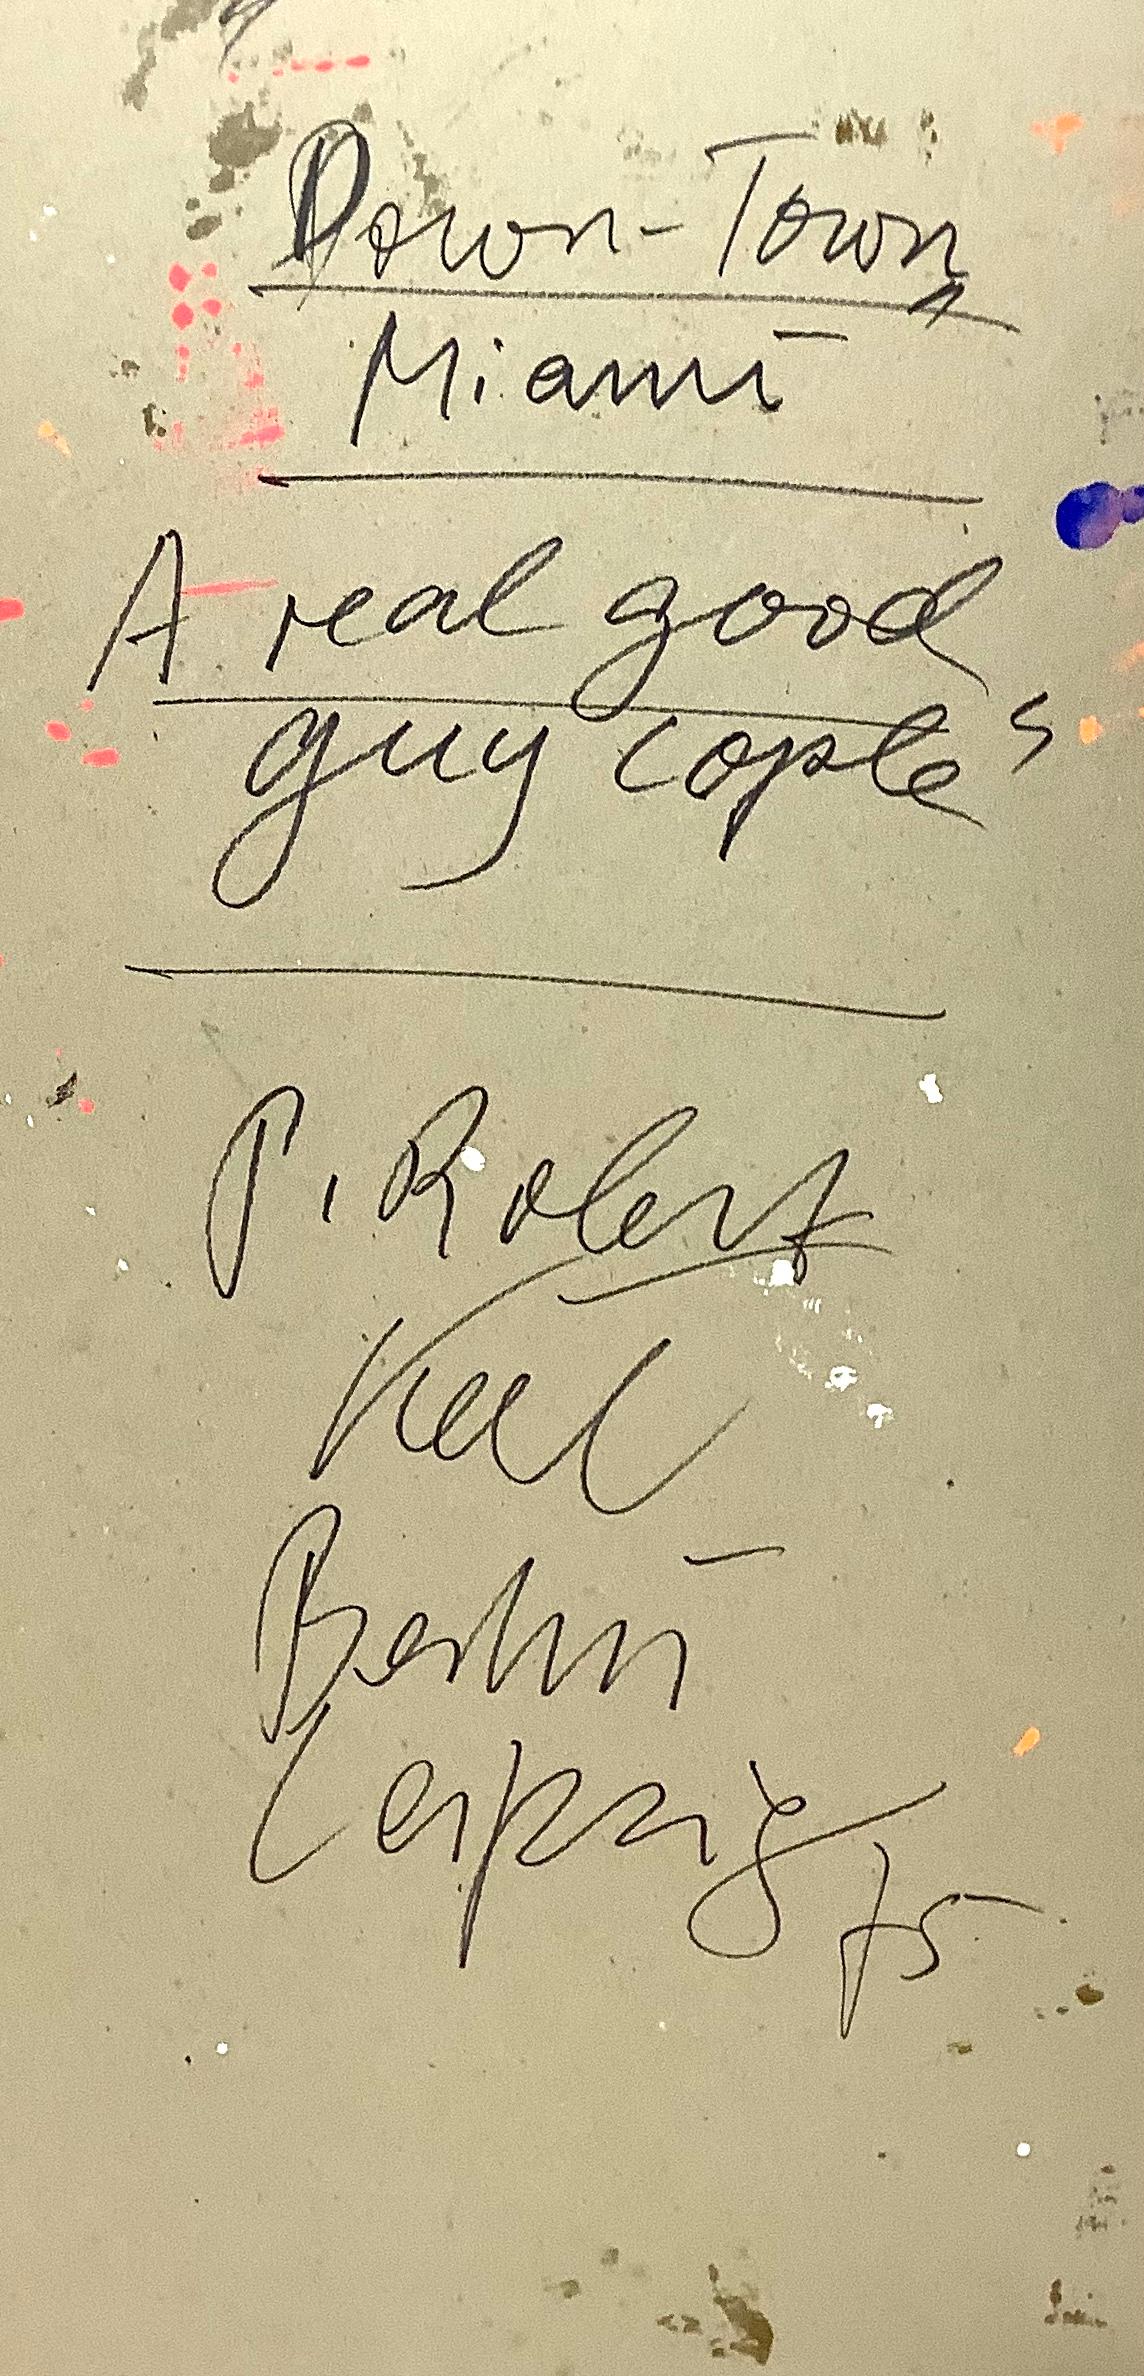 Down-Town
Miami
A real good
guy cople s
P. Robert
Keil
Berlin
Leipzig
75